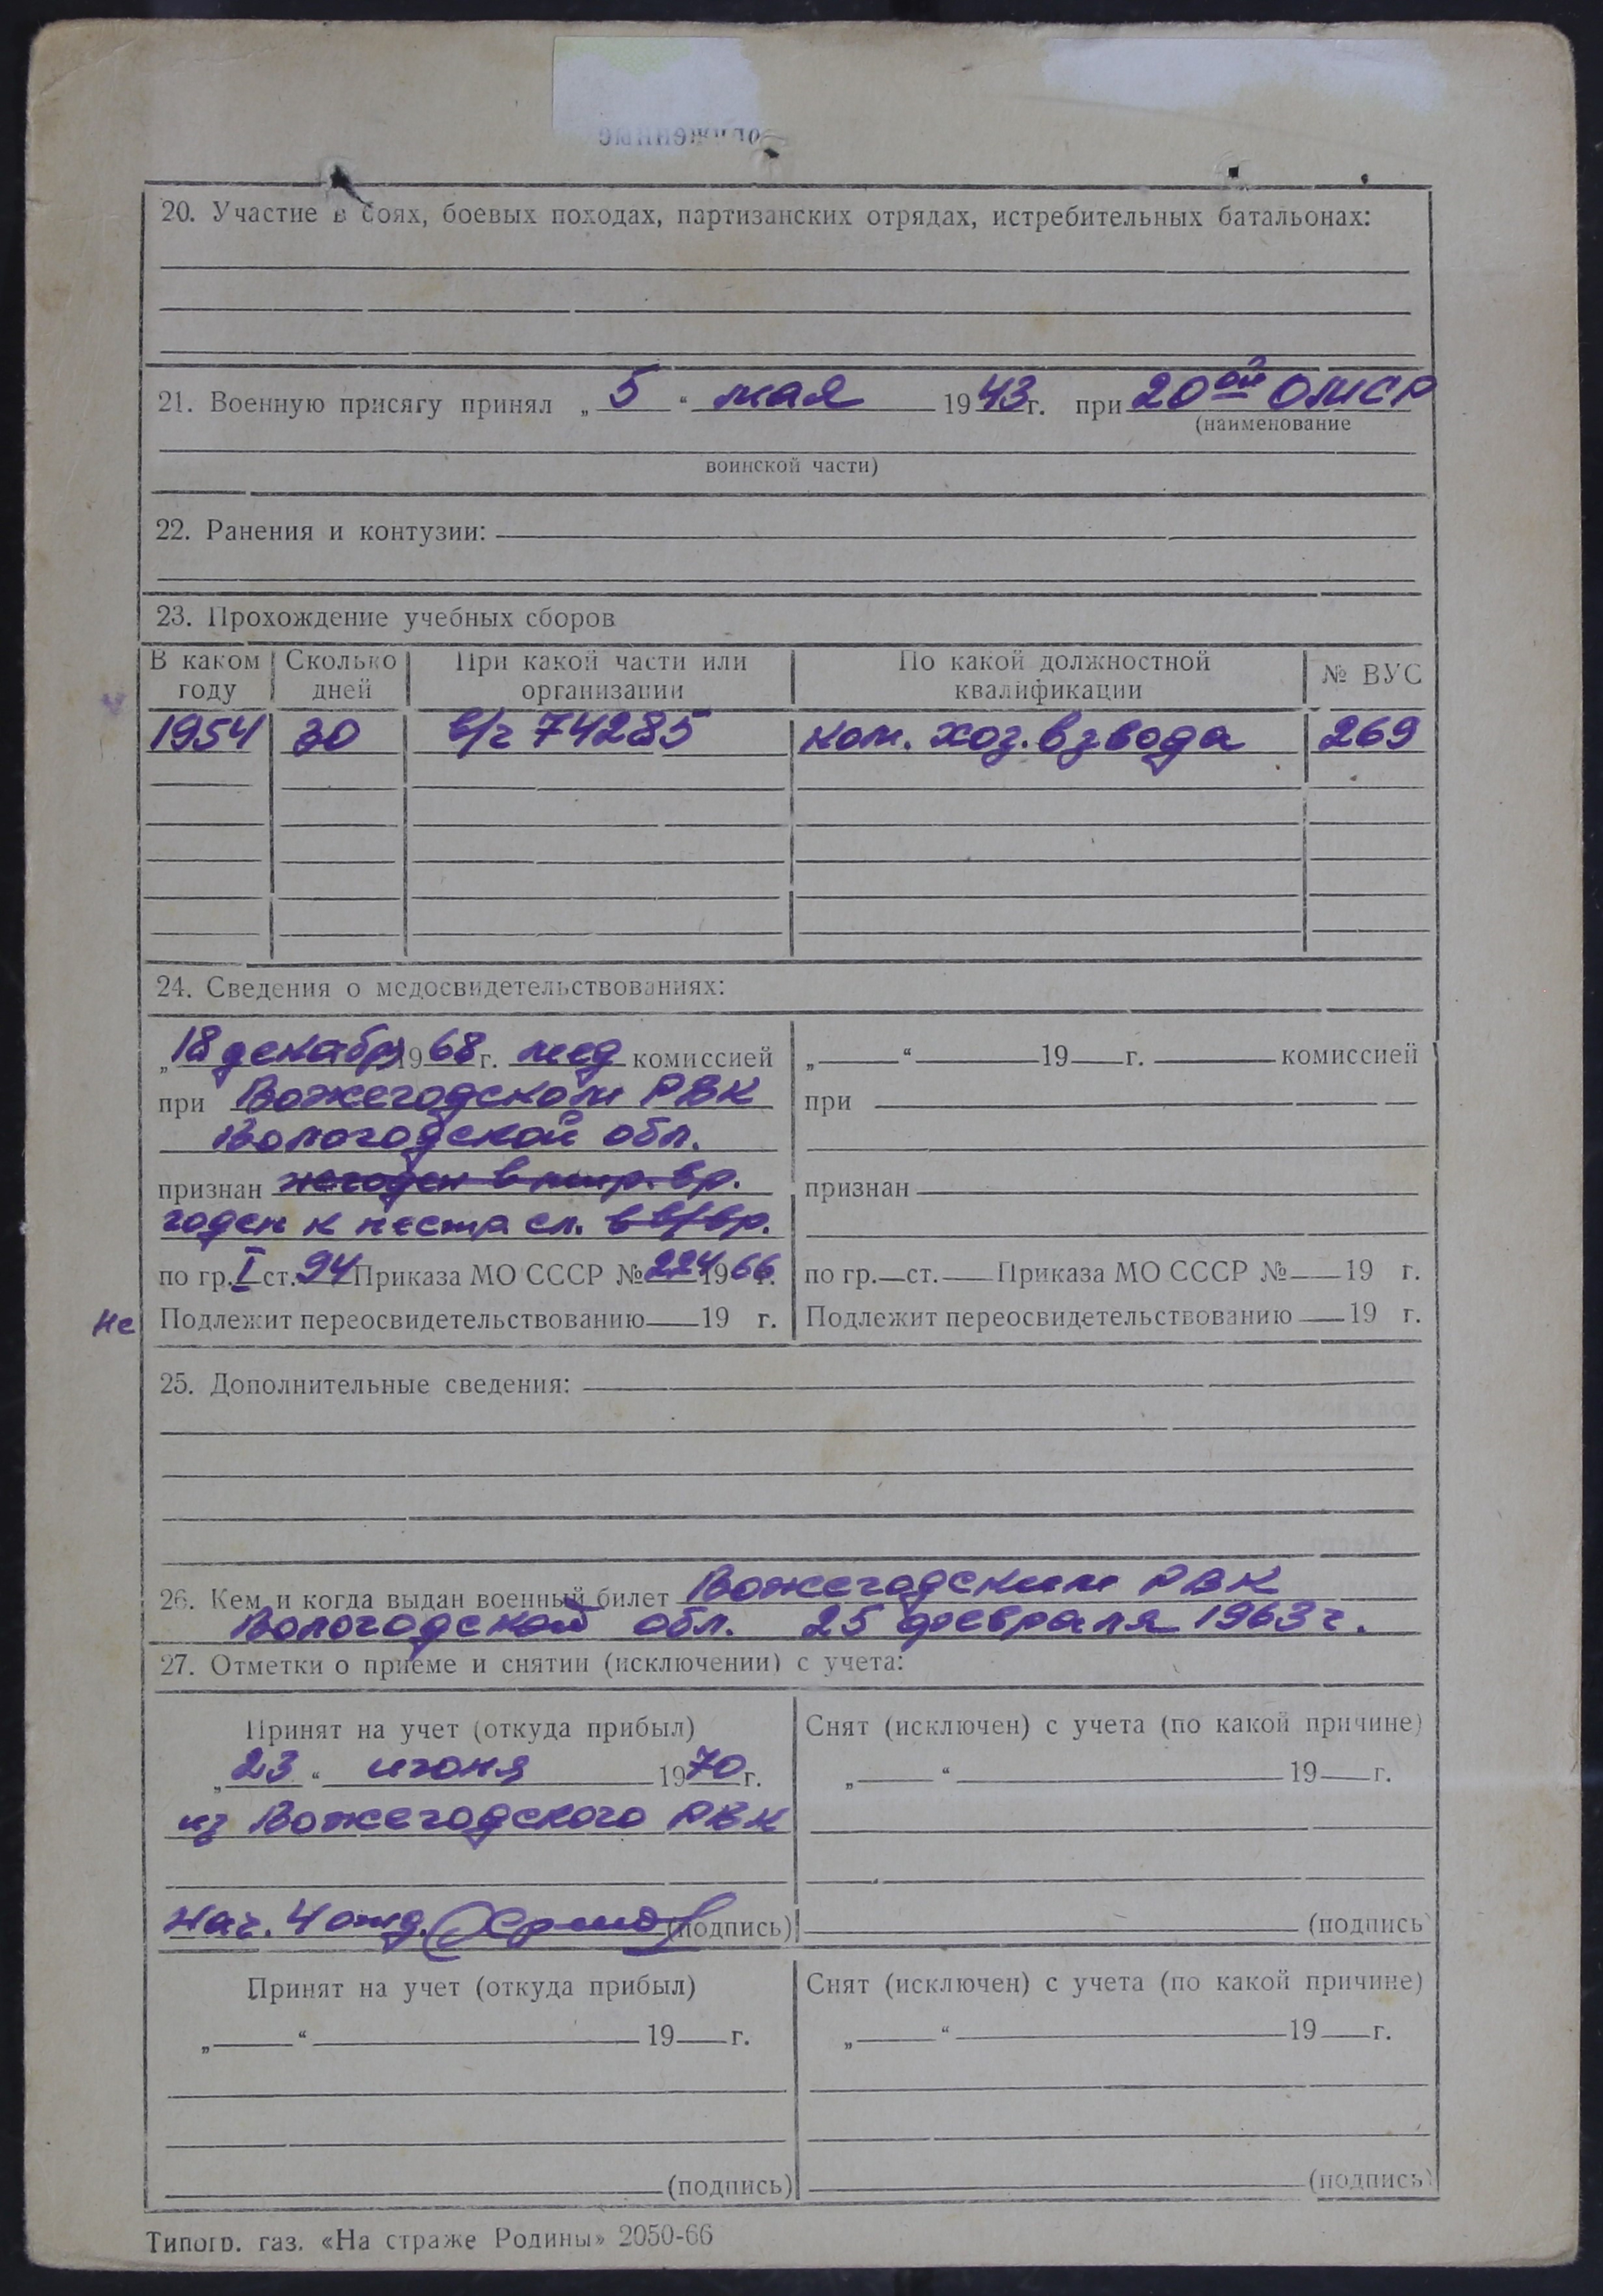 20. Участие в боях, боевых походах, партизанских отрядах, истребительных батальонах:
21. Военную присягу принял „5“ мая 1943 г. при 20ой ОМСР
(наименование
воинской части)
22. Ранения и контузии:
23. Прохождение учебных сборов
В каком году Сколько дней При какой части или организации По какой должностной квалификации № ВУС
1954 30 в/ч 74285 ком. хоз. взвода 269
24. Сведения о медосвидетельствованиях:
„18 декабр 1968 г. мед комиссией
при Вожегодском РВК
Вологодской обл.
признан негоден в мир. вр.
годен к нестр сл. в в/вр.
по гр. I ст. 94 Приказа МО СССР № 224 1966 г.
Не Подлежит переосвидетельствованию 19 г.
„ “ 19 г. комиссией
при
признан
по гр. ст. Приказа МО СССР № 19 г.
Подлежит переосвидетельствованию 19 г.
25. Дополнительные сведения:
26. Кем и когда выдан военный билет Вожегодским РВК
Вологодской обл. 25 февраля 1963 г.
27. Отметки о приеме и снятии (исключении) с учета:
Принят на учет (откуда прибыл)
„23“ июня 1970 г.
из Вожегодского РВК
Нач. 4 отд. (подпись)
Снят (исключен) с учета (по какой причине)
„ “ 19 г.
(подпись)
Принят на учет (откуда прибыл)
„ “ 19 г.
(подпись)
Снят (исключен) с учета (по какой причине)
„ “ 19 г.
(подпись)
Типогр. газ. «На страже Родины» 2050-66